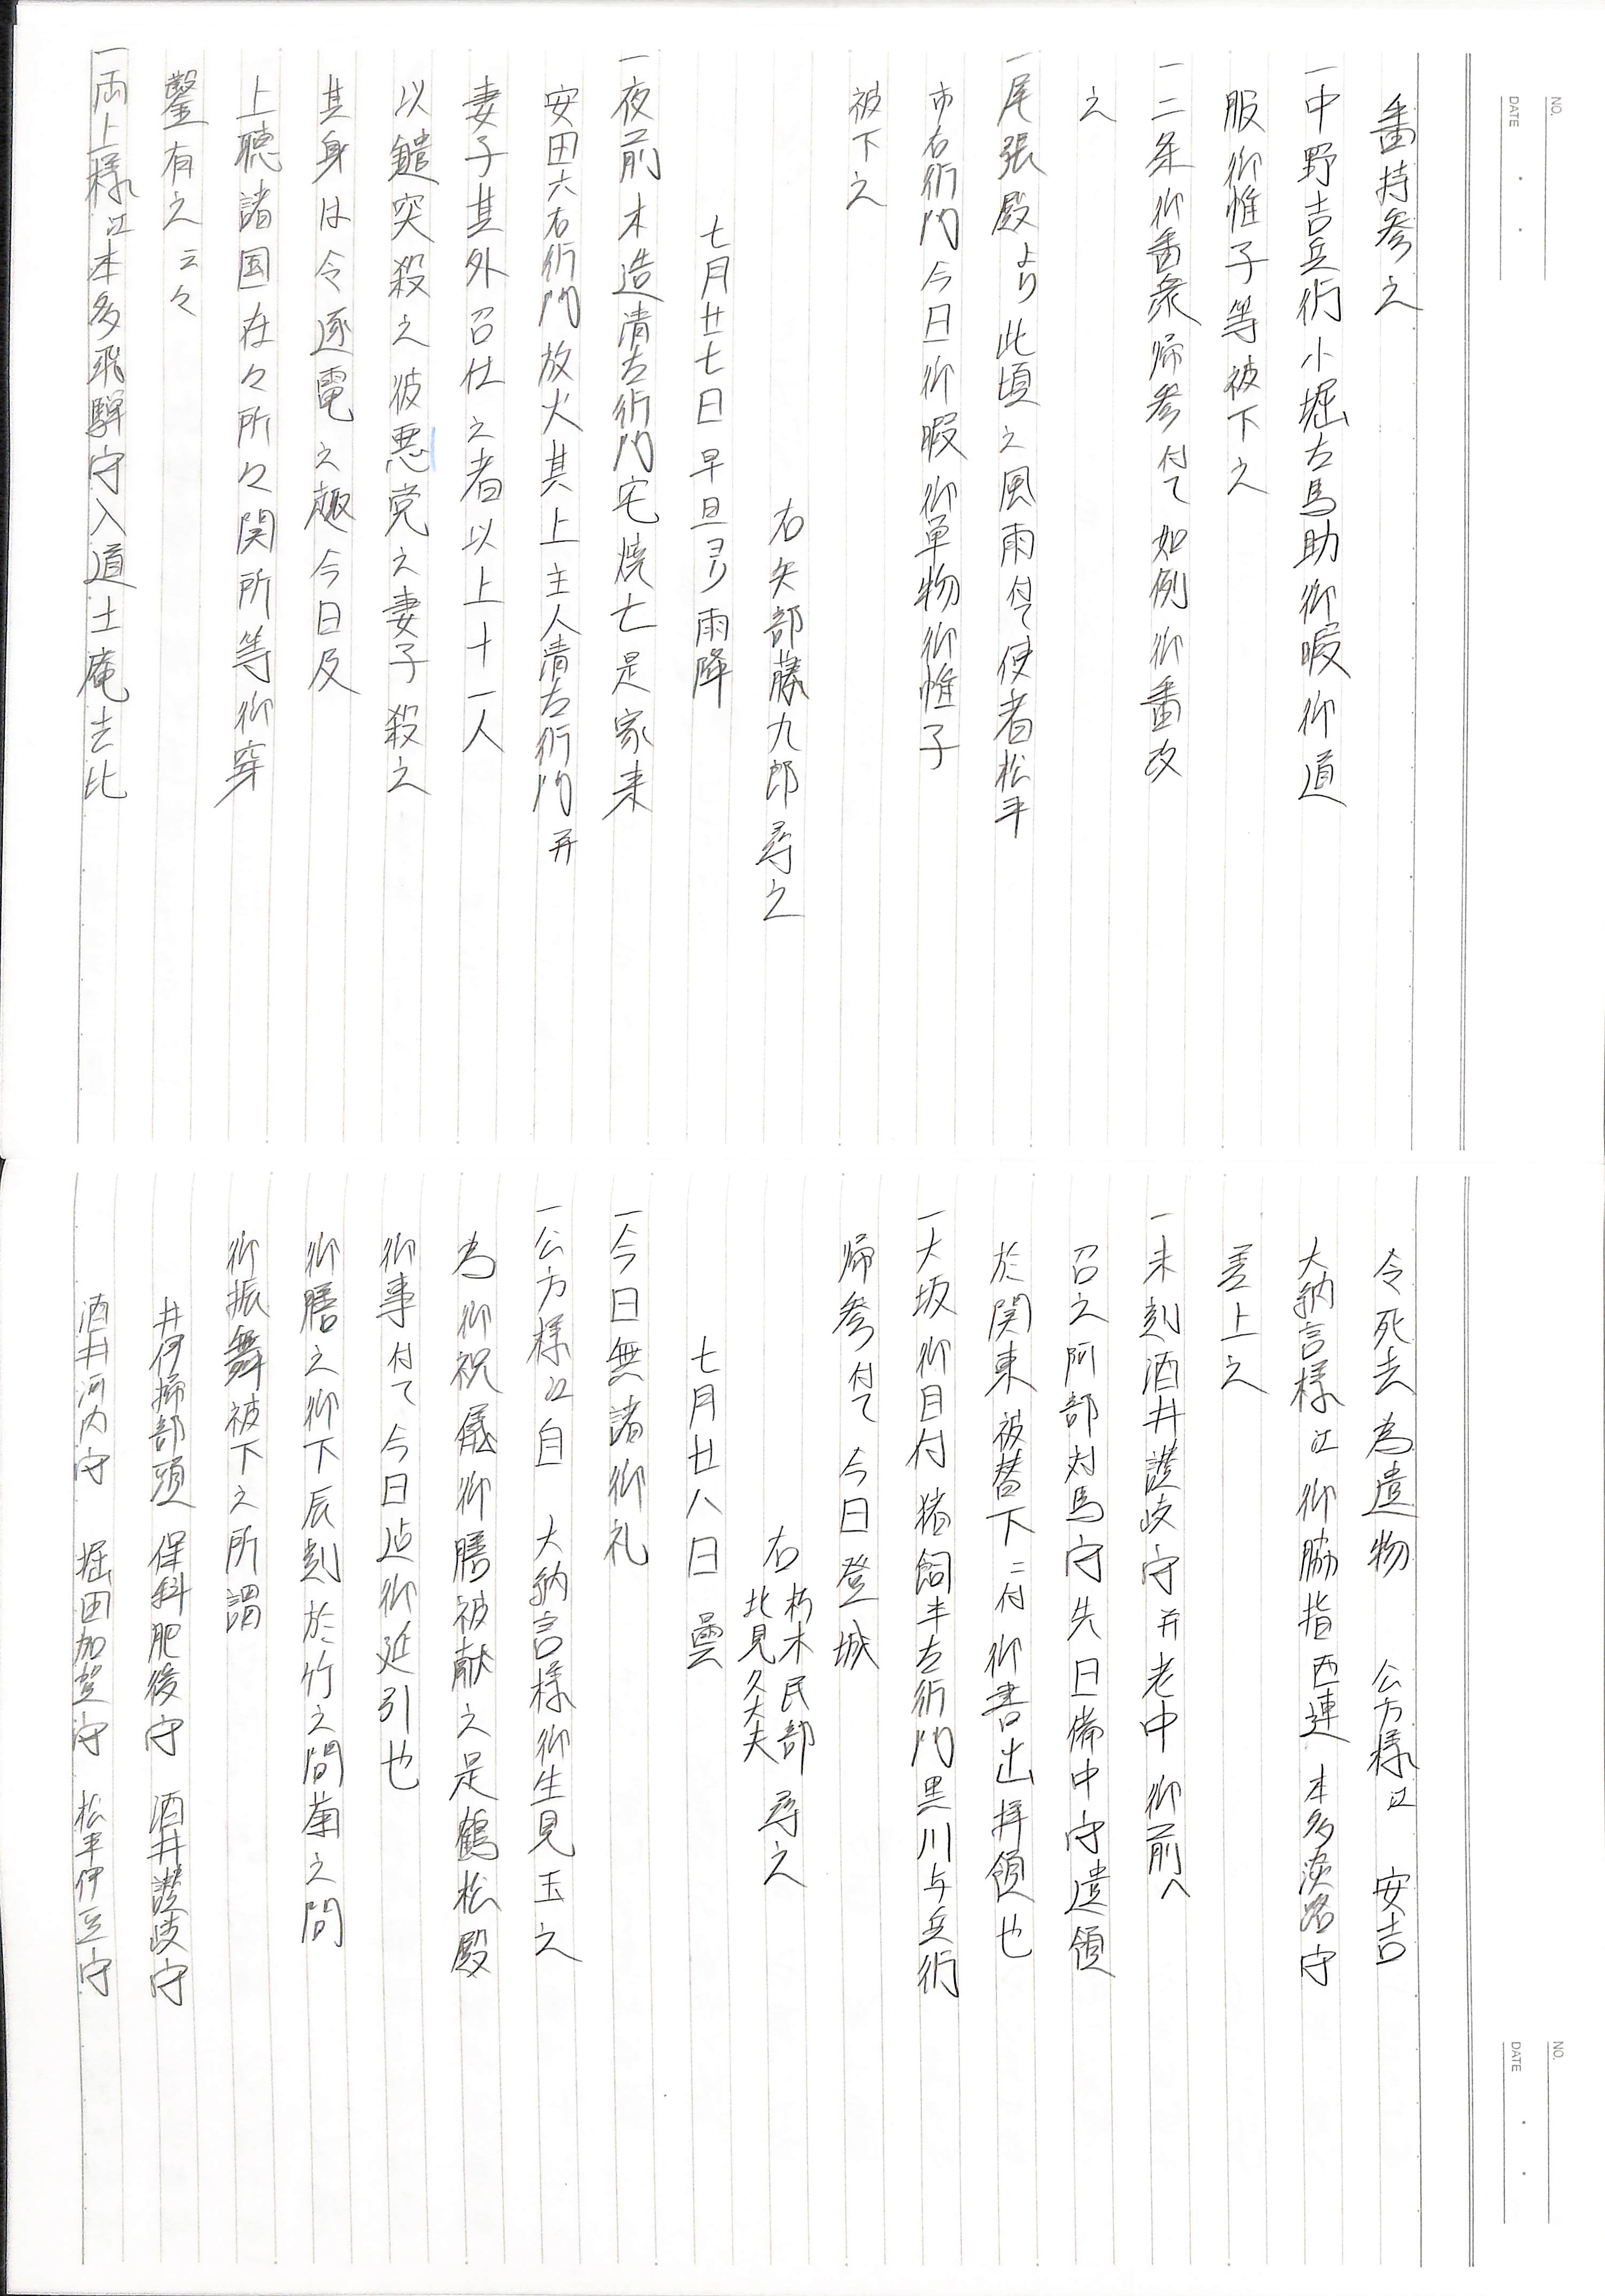 NO.
DATE
番持参之
一中野吉兵衛小堀左馬助御暇御道
服御帷子等被下之
一二条御番衆帰参付て如例御番改
之
一尾張殿より此頃之風雨付て使者松平
市右衛門今日御暇御単物御帷子
被下之
右矢部藤九郎尋之
七月廿七日早旦ヨリ雨降
一夜前木造清左衛門宅焼亡是家来
安田六右衛門放火其上主人清左衛門并
妻子其外召仕之者以上十一人
以鑓突殺之彼悪党之妻子殺之
其身は令逐電之趣今日及
上聴諸国在々所々関所等御穿
鑿有之云々
一両上様江本多飛騨守入道土庵去比
NO.
DATE
令死去為遺物 公方様江 安吉
大納言様江御脇指西連 本多淡路守
差上之
一未刻酒井讃岐守并老中御前へ
召之阿部対馬守先日備中守遺領
於関東被替下ニ付御書出拝領也
一大坂御目付猪飼半左衛門黒川与兵衛
帰参付て今日登城
右朽木民部
北見久大夫 尋之
七月廿八日 曇
一今日無諸御礼
一公方様江自 大納言様御生見玉之
為御祝儀御膳被献之是鶴松殿
御事付て今日迠御延引也
御膳之御下辰刻於竹之間菊之間
御振舞被下之所謂
井伊掃部頭 保科肥後守 酒井讃岐守
酒井河内守 堀田加賀守 松平伊豆守